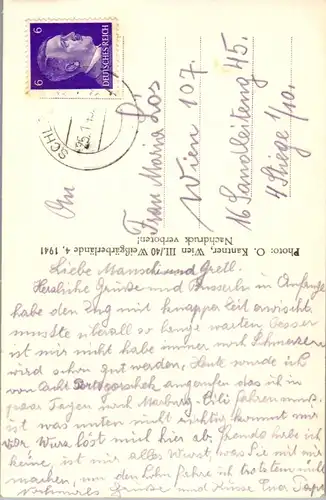 6 6
DEUTSCHES REICH
SCHL
25.1.
An
Frau Maria Los
Wien 107.
16 Sandleiteng 45.
4 Stiege 1/10.
Photo: O. Kantner, Wien III./40 Weißgärberlände, 4. 1941
Nachdruck verboten!
Liebe Mamschi und Gretl.
Herzliche Grüße und Busserln in Anfange
habe den Zug mit knapper Zeit erwischt
musste überall so lange warten besser
ist mir nicht habe immer noch Schmerzen
wird schon gut werden, Heute wurde ich
von angerufen das ich in
paar Tagen nach Marburg Cili fahren muß,
ist was unten nicht richtig kommt mir
vor Wira lost mich hier ab, Freude habe ich
keine, ist mir alles Wurst, was Sie mit mir
machen, nur den Lohn fahre ich trotzdem
Nochmals Grüße und Küsse Euer Papa